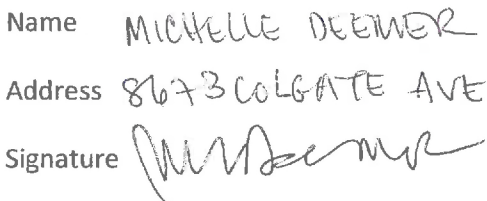 Name MICHELLE DEEMER
Address 8673 COLGATE AVE
Signature